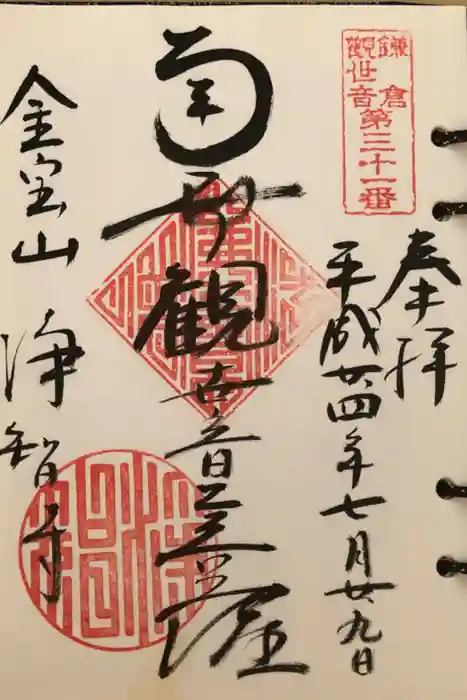 鎌倉
觀世音
第三十一番
奉拝
平成廿四年七月廿九日
南無観世音菩薩
金宝山 浄智寺